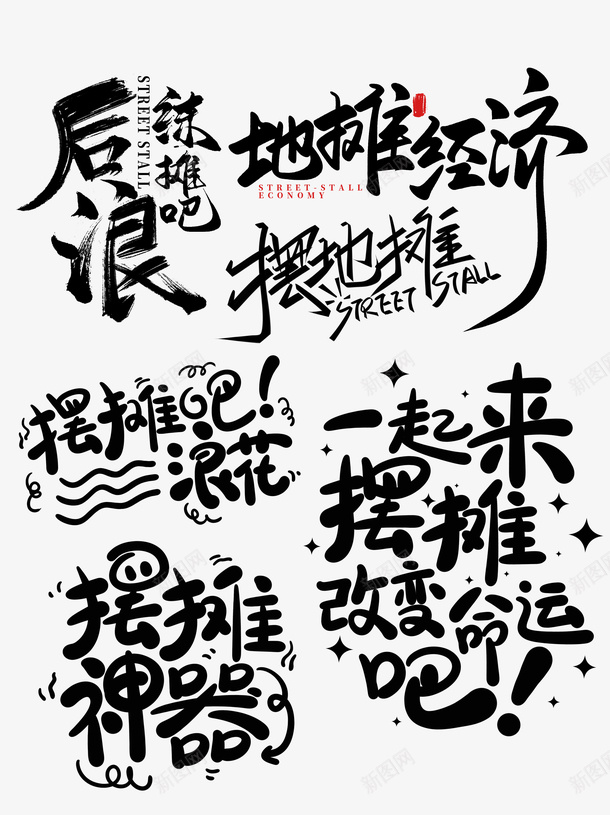 后浪
练摊吧
STREET STALL
地摊经济
STREET-STALL
ECONOMY
摆地摊
STREET STALL
摆摊吧!
浪花
一起来
摆摊
改变命运
吧!
摆摊
神器